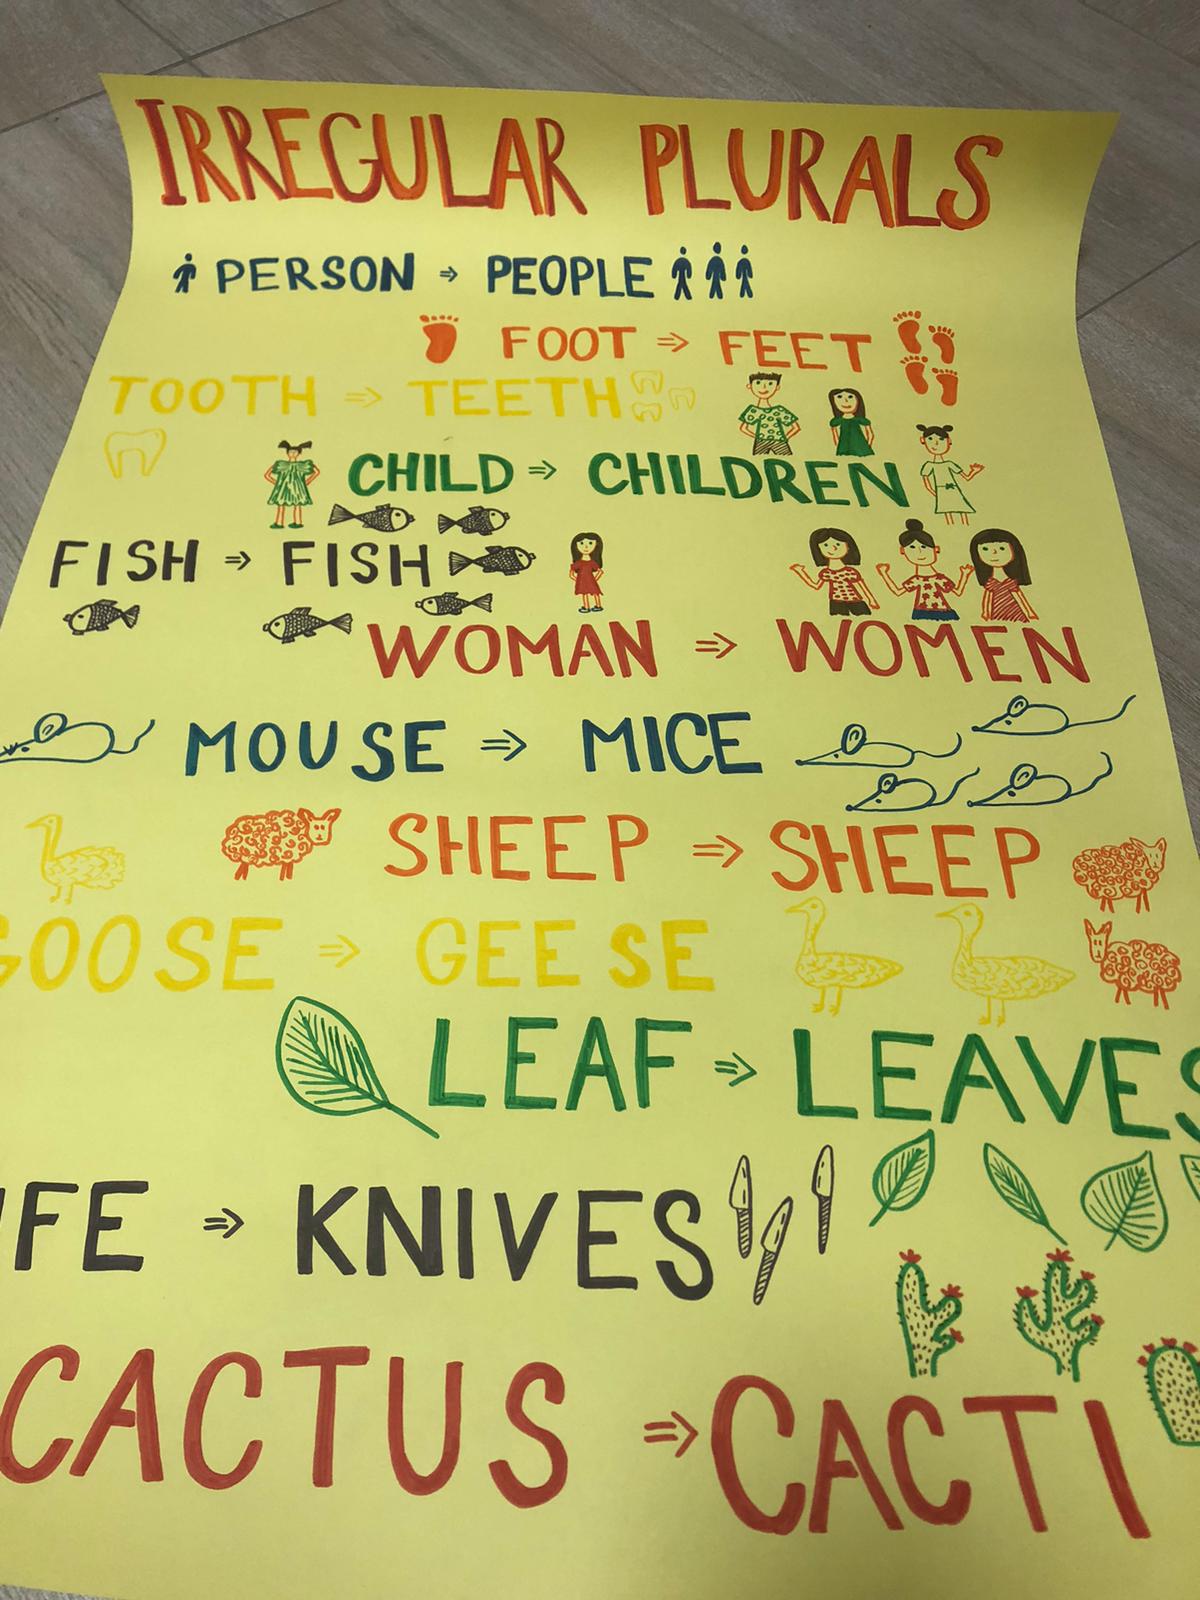 IRREGULAR PLURALS
PERSON ⇒ PEOPLE
FOOT ⇒ FEET
TOOTH ⇒ TEETH
CHILD ⇒ CHILDREN
FISH ⇒ FISH
WOMAN ⇒ WOMEN
MOUSE ⇒ MICE
SHEEP ⇒ SHEEP
GOOSE ⇒ GEESE
LEAF ⇒ LEAVES
IFE ⇒ KNIVES
CACTUS ⇒ CACTI